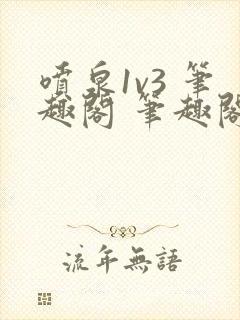 噴泉1v3 筆
趣閣 筆趣閣
流年無語